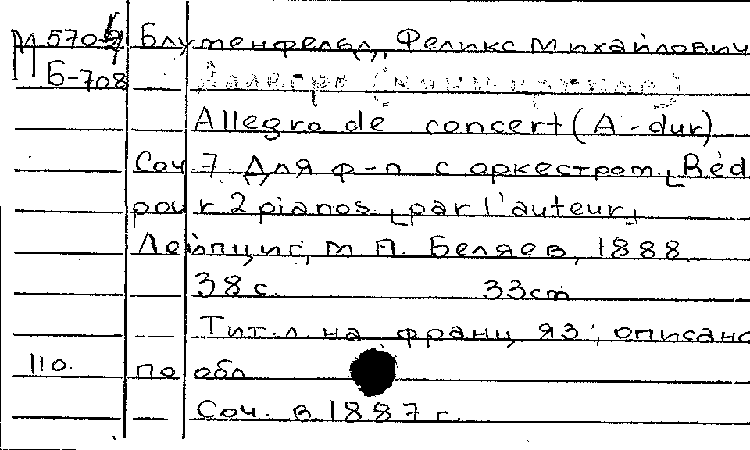 М 5704 Блуменфельд, Феликс Михайлович
Б-708 Аллегро
Allegro de concert (A-dur)
Соч 7. Для ф-п с оркестром [Réd
pour 2 pianos [par l'auteur]
Лейпциг, М. П. Беляев, 1888
38 с. 33cm
Тит. л. на франц яз; описано
110. по обл
Соч. в 1887 г.